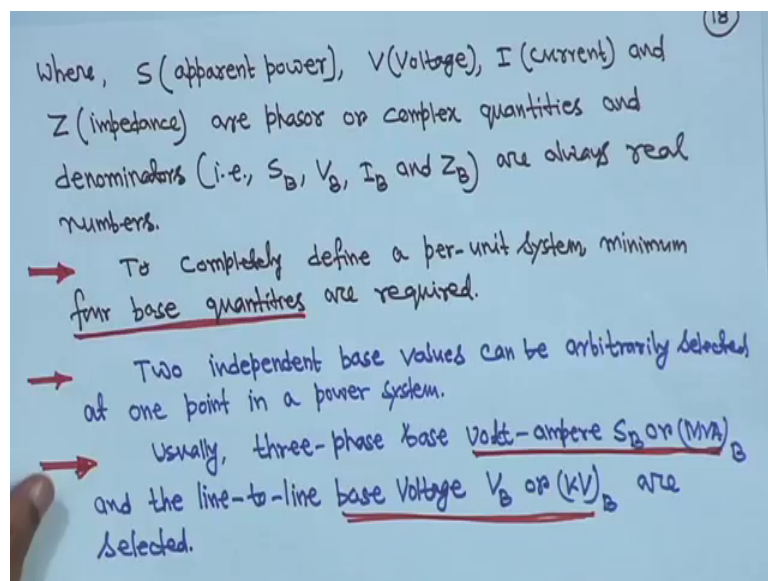 18
where, S (apparent power), V (Voltage), I (current) and
Z (impedance) are phasor or complex quantities and
denominators (i.e., S_B, V_B, I_B and Z_B) are always real
numbers.
→ To completely define a per-unit system, minimum
four base quantities are required.
→ Two independent base values can be arbitrarily selected
at one point in a power system.
→ Usually, three-phase base volt-ampere S_B or (MVA)_B
and the line-to-line base Voltage V_B or (KV)_B are
selected.